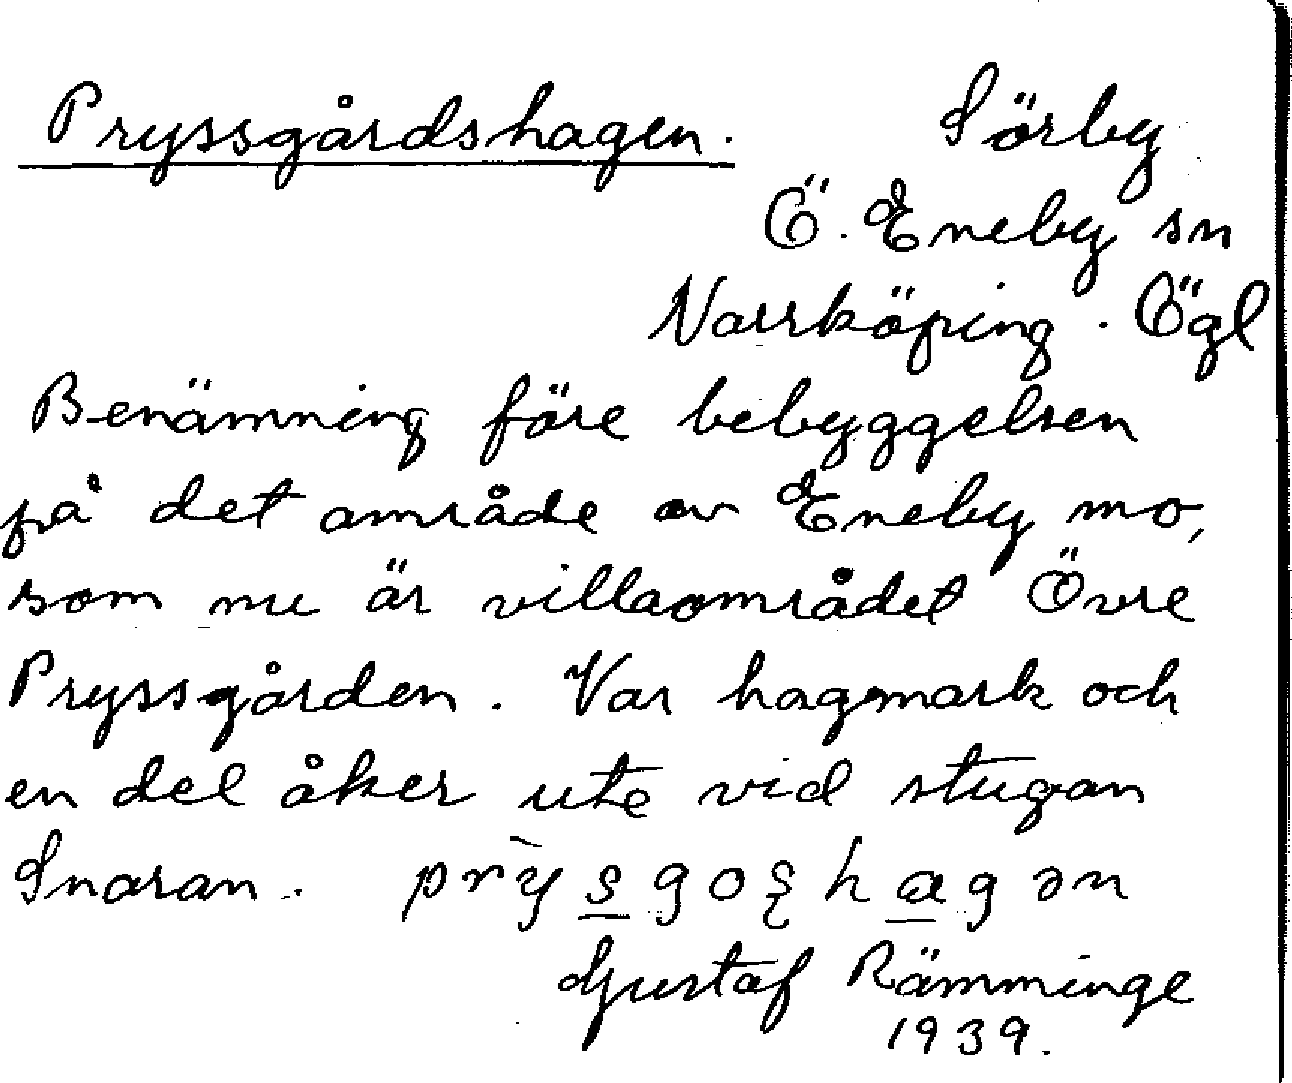 Pryssgårdshagen. Sörby
Ö. Eneby sn
Norrköping. Ögl
Benämning före bebyggelsen
på det område av Eneby mo,
som nu är villaområdet Övre
Pryssgården. Var hagmark och
en del åker ute vid stugan
Snaran. prỳsgoʂhagən
Gustaf Rämminge
1939.